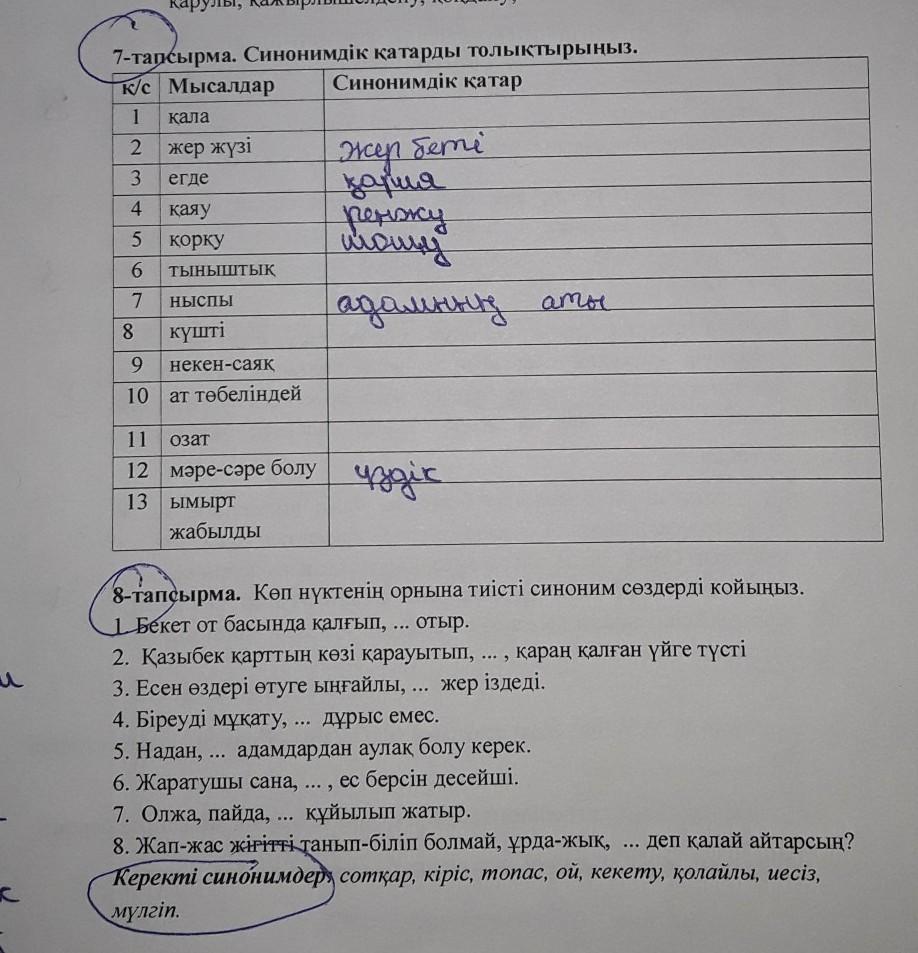 7-тапсырма. Синонимдік қатарды толықтырыңыз.
к/с Мысалдар Синонимдік қатар
1 қала
2 жер жүзі жер беті
3 егде қария
4 қаяу ренжу
5 қорқу шошу
6 тыныштық
7 ныспы адамның аты
8 күшті
9 некен-саяқ
10 ат төбеліндей
11 озат
12 мәре-сәре болу үздік
13 ымырт
жабылды
8-тапсырма. Көп нүктенің орнына тиісті синоним сөздерді қойыңыз.
1. Бекет от басында қалғып, ... отыр.
2. Қазыбек қарттың көзі қарауытып, ... , қараң қалған үйге түсті
3. Есен өздері өтуге ыңғайлы, ... жер іздеді.
4. Біреуді мұқату, ... дұрыс емес.
5. Надан, ... адамдардан аулақ болу керек.
6. Жаратушы сана, ... , ес берсін десейші.
7. Олжа, пайда, ... құйылып жатыр.
8. Жап-жас жігітті танып-біліп болмай, ұрда-жық, ... деп қалай айтарсың?
Керекті синонимдер: сотқар, кіріс, топас, ой, кекету, қолайлы, иесіз,
мүлгіп.